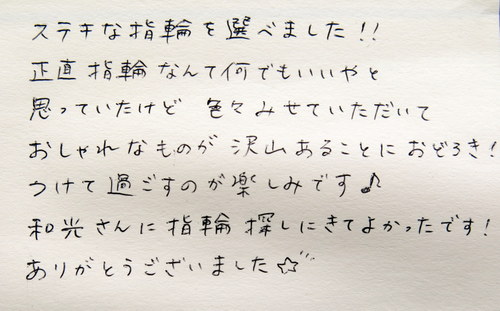 ステキな指輪を選べました!!
正直指輪なんて何でもいいやと
思っていたけど 色々みせていただいて
おしゃれなものが沢山あることにおどろき!
つけて過ごすのが楽しみです♪
和光さんに指輪探しにきてよかったです!
ありがとうございました☆